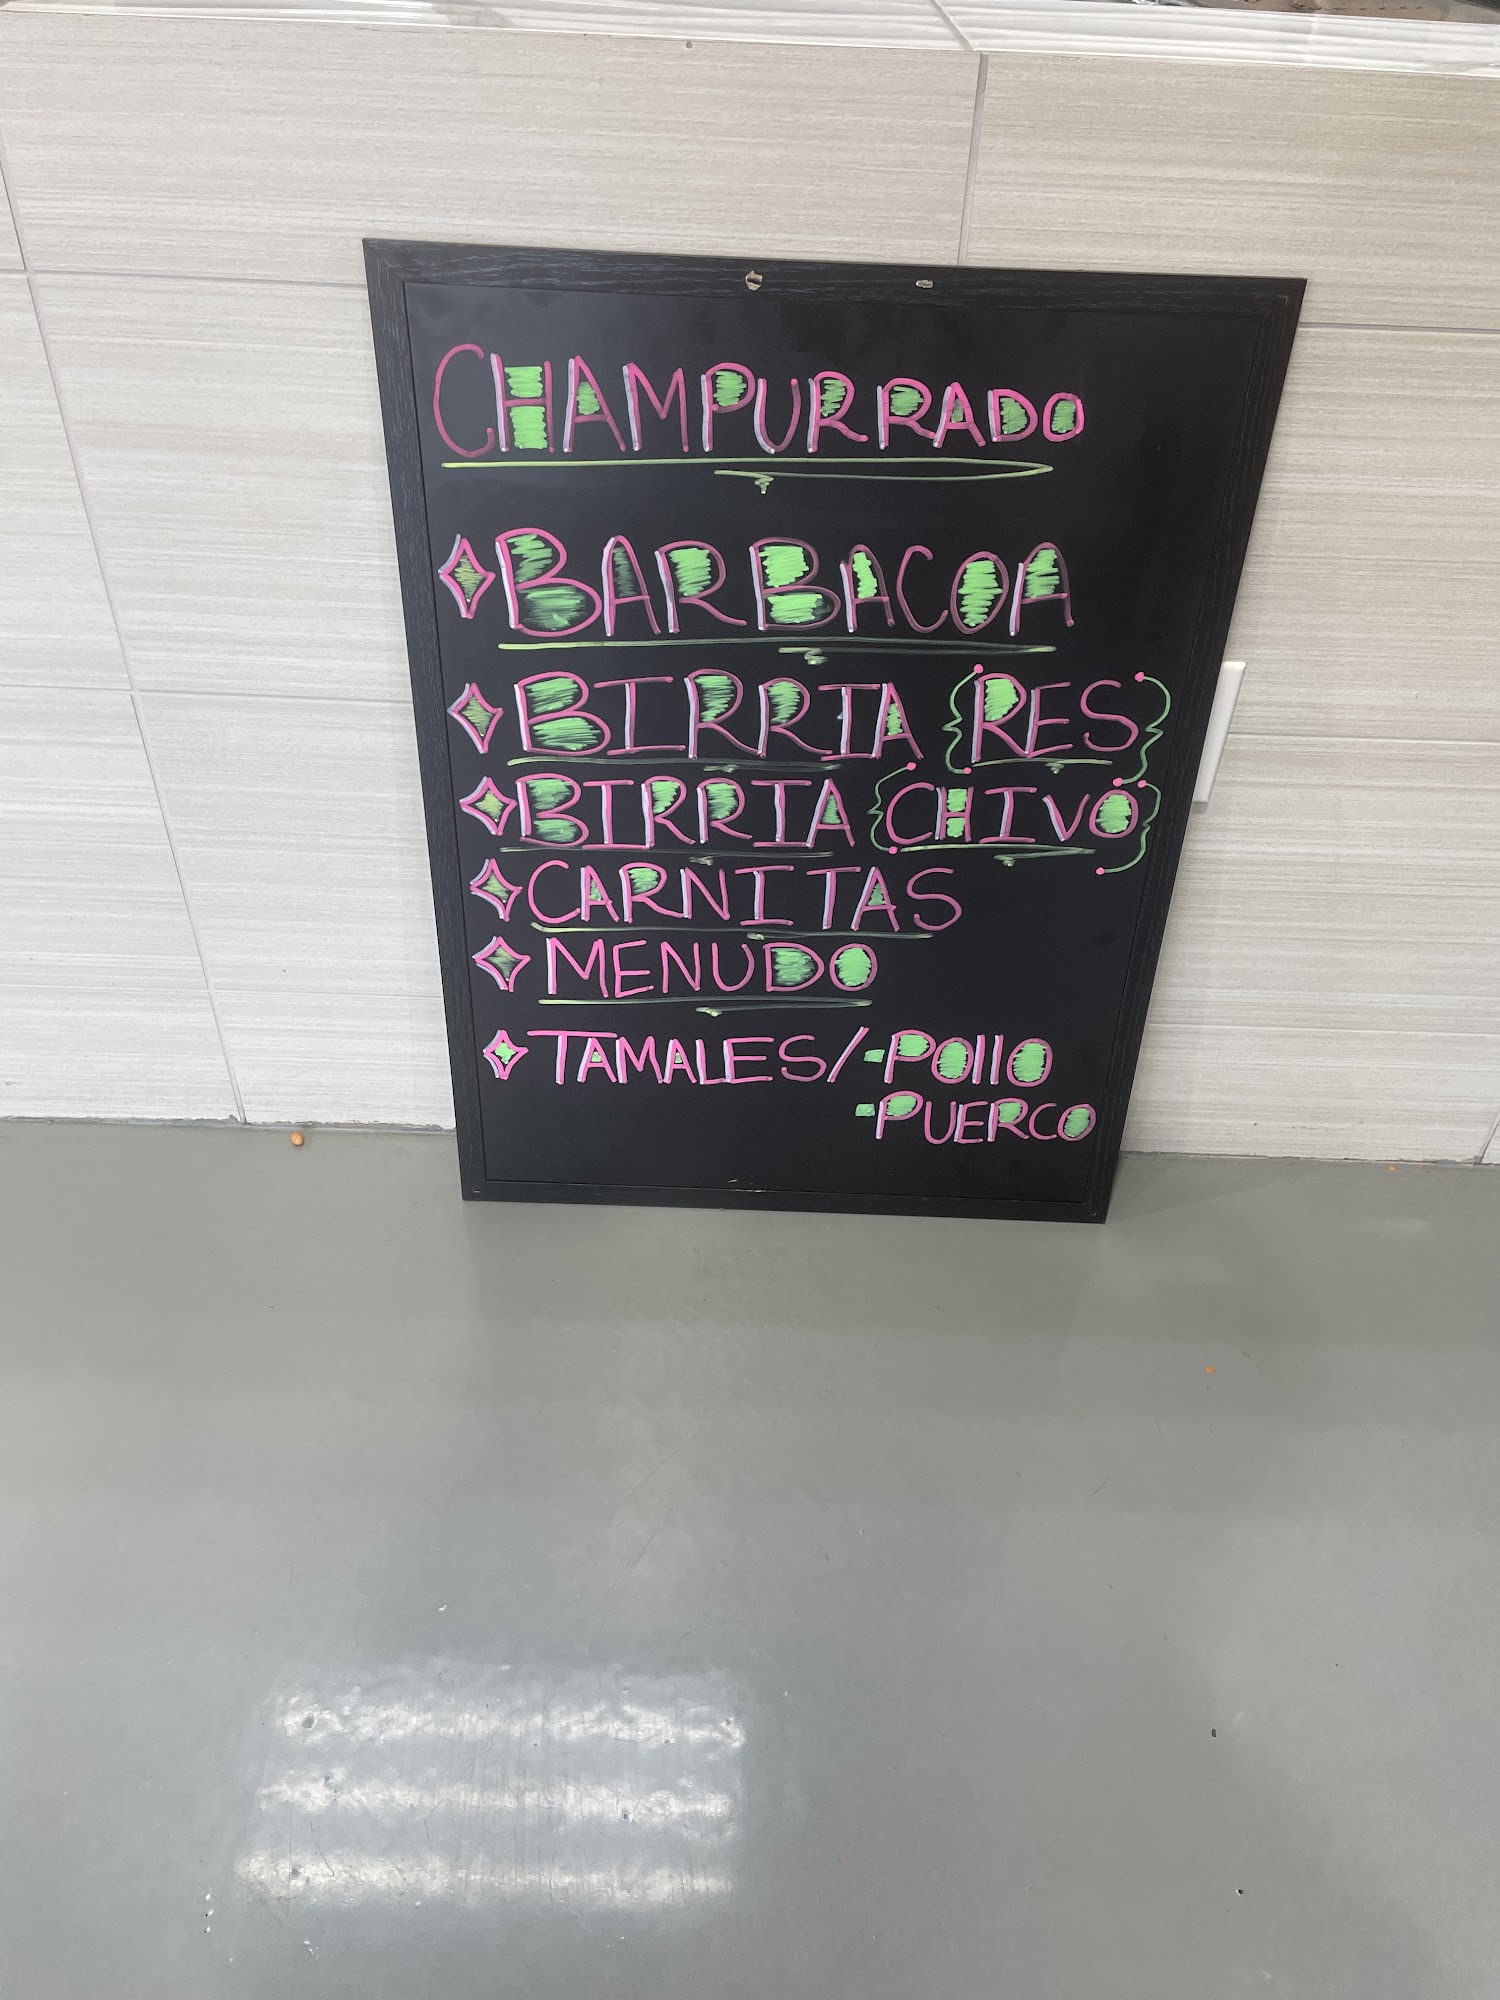 CHAMPURRADO
BARBACOA
BIRRIA {RES}
BIRRIA {CHIVO}
CARNITAS
MENUDO
TAMALES/-POllO
-PUERCO